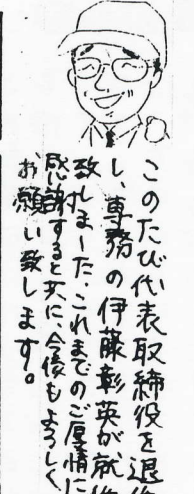 このたび代表取締役を退
し、専務の伊藤彰英が就
致しました。これまでのご厚情に
感謝すると共に、今後もよろしく
お願い致します。